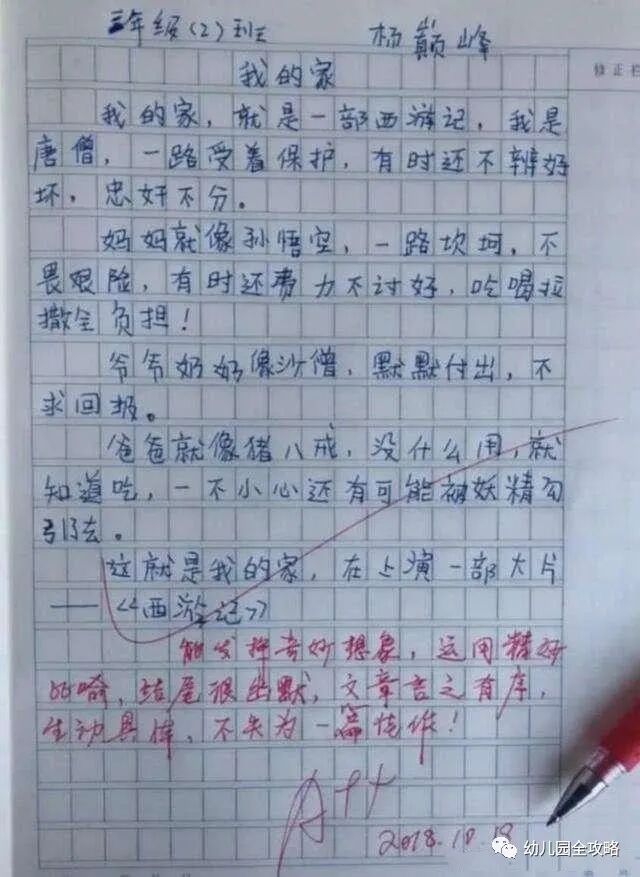 三年级(2)班 杨巅峰
修正栏
我的家
我的家，就是一部西游记，我是
唐僧，一路受着保护，有时还不辨好
坏，忠奸不分。
妈妈就像孙悟空，一路坎坷，不
畏艰险，有时还费力不讨好，吃喝拉
撒全负担！
爷爷奶奶像沙僧，默默付出，不
求回报。
爸爸就像猪八戒，没什么用，就
知道吃，一不小心还有可能被妖精勾
引去。
这就是我的家，在上演一部大片
——《西游记》
能发挥奇妙想象，运用精妙
比喻，结尾很幽默，文章言之有序，
生动具体，不失为一篇佳作！
A++
2018.10.18
幼儿园全攻略